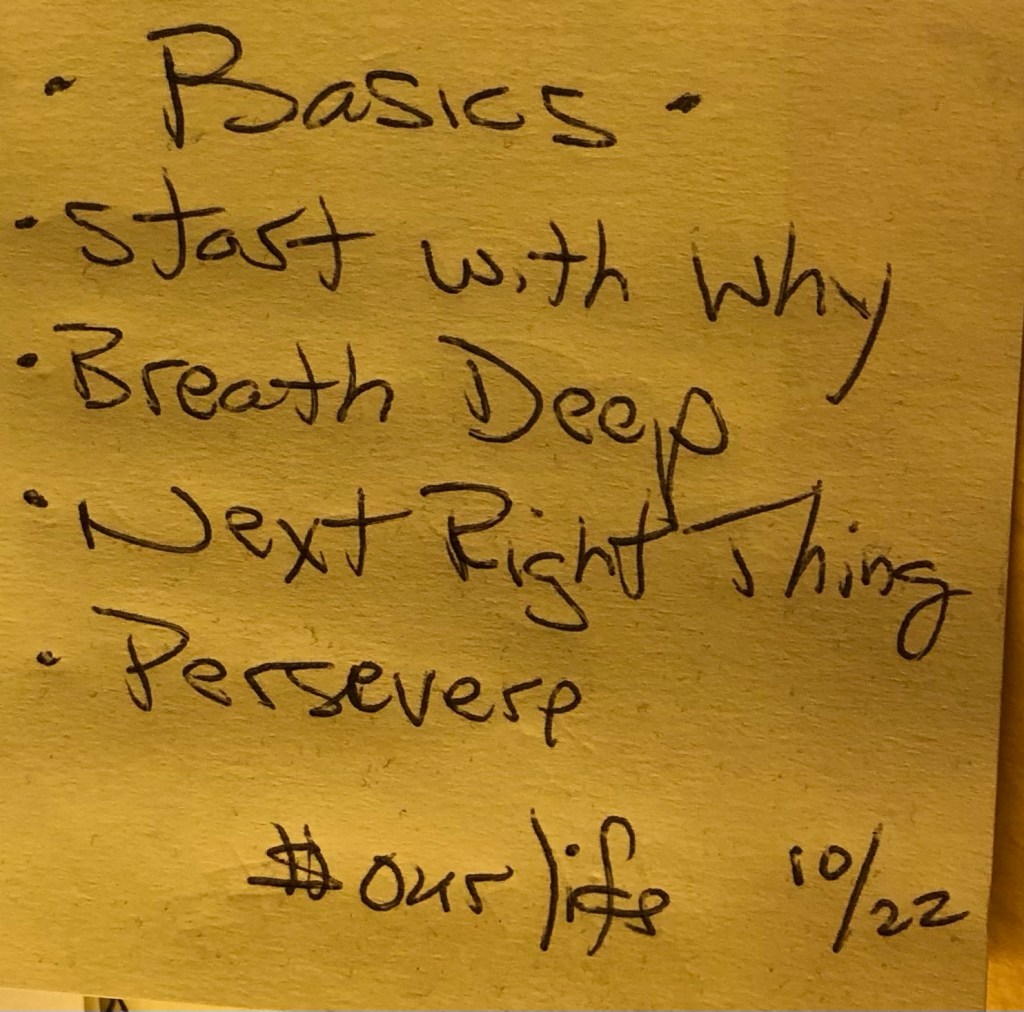 · Basics ·
· Start with Why
· Breath Deep
· Next Right Thing
· Persevere
#ourlife 10/22